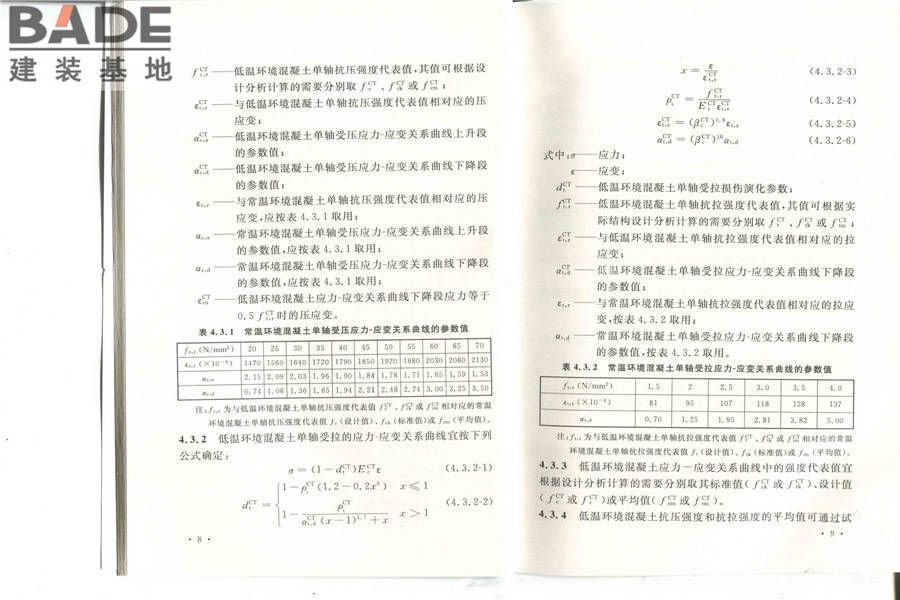 BADE
建装基地
f_{c,r}^{CT}——低温环境混凝土单轴抗压强度代表值,其值可根据设
计分析计算的需要分别取 f_c^{CT}、f_{ck}^{CT} 或 f_{cm}^{CT};
ε_{c,r}^{CT}——与低温环境混凝土单轴抗压强度代表值相对应的压
应变;
α_{c,a}^{CT}——低温环境混凝土单轴受压应力-应变关系曲线上升段
的参数值;
α_{c,d}^{CT}——低温环境混凝土单轴受压应力-应变关系曲线下降段
的参数值;
ε_{c,r}——与常温环境混凝土单轴抗压强度代表值相对应的压
应变,应按表 4.3.1 取用;
α_{c,a}——常温环境混凝土单轴受压应力-应变关系曲线上升段
的参数值,应按表 4.3.1 取用;
α_{c,d}——常温环境混凝土单轴受压应力-应变关系曲线下降段
的参数值,应按表 4.3.1 取用;
ε_{cu}^{CT}——低温环境混凝土应力-应变关系曲线下降段应力等于
0.5 f_{c,r}^{CT} 时的压应变。
表 4.3.1 常温环境混凝土单轴受压应力-应变关系曲线的参数值
f_{c,r}(N/mm²) 20 25 30 35 40 45 50 55 60 65 70
ε_{c,r}(×10⁻⁶) 1470 1560 1640 1720 1790 1850 1920 1980 2030 2080 2130
α_{c,a} 2.15 2.09 2.03 1.96 1.90 1.84 1.78 1.71 1.65 1.59 1.53
α_{c,d} 0.74 1.06 1.36 1.65 1.94 2.21 2.48 2.74 3.00 3.25 3.50
注:f_{c,r} 为与低温环境混凝土单轴抗压强度代表值 f_c^{CT}、f_{ck}^{CT} 或 f_{cm}^{CT} 相对应的常温
环境混凝土单轴抗压强度代表值 f_c(设计值)、f_{ck}(标准值)或 f_{cm}(平均值)。
4.3.2 低温环境混凝土单轴受拉的应力-应变关系曲线宜按下列
公式确定:
σ=(1-d_t^{CT})E_c^{CT}ε (4.3.2-1)
d_t^{CT}={1-ρ_t^{CT}(1.2-0.2x⁵) x≤1
1-ρ_t^{CT}/(α_{t,d}^{CT}(x-1)^{1.7}+x) x>1 (4.3.2-2)
• 8 •
x=ε/ε_{t,r}^{CT} (4.3.2-3)
ρ_t^{CT}=f_{t,r}^{CT}/(E_c^{CT}ε_{t,r}^{CT}) (4.3.2-4)
ε_{t,r}^{CT}=(β_c^{CT})^{0.8}ε_{t,r} (4.3.2-5)
α_{t,d}^{CT}=(β_c^{CT})^{16}α_{t,d} (4.3.2-6)
式中:σ——应力;
ε——应变;
d_t^{CT}——低温环境混凝土单轴受拉损伤演化参数;
f_{t,r}^{CT}——低温环境混凝土单轴抗拉强度代表值,其值可根据实
际结构设计分析计算的需要分别取 f_t^{CT}、f_{tk}^{CT} 或 f_{tm}^{CT};
ε_{t,r}^{CT}——与低温环境混凝土单轴抗拉强度代表值相对应的拉
应变;
α_{t,d}^{CT}——低温环境混凝土单轴受拉应力-应变关系曲线下降段
的参数值;
ε_{t,r}——与常温环境混凝土单轴抗拉强度代表值相对应的拉应
变,按表 4.3.2 取用;
α_{t,d}——常温环境混凝土单轴受拉应力-应变关系曲线下降段
的参数值,按表 4.3.2 取用。
表 4.3.2 常温环境混凝土单轴受拉应力-应变关系曲线的参数值
f_{t,r}(N/mm²) 1.5 2 2.5 3.0 3.5 4.0
ε_{t,r}(×10⁻⁶) 81 95 107 118 128 137
α_{t,d} 0.70 1.25 1.95 2.81 3.82 5.00
注:f_{t,r} 为与低温环境混凝土单轴抗拉强度代表值 f_t^{CT}、f_{tk}^{CT} 或 f_{tm}^{CT} 相对应的常温
环境混凝土单轴抗拉强度代表值 f_t(设计值)、f_{tk}(标准值)或 f_{tm}(平均值)。
4.3.3 低温环境混凝土应力-应变关系曲线中的强度代表值宜
根据设计分析计算的需要分别取其标准值(f_{ck}^{CT} 或 f_{tk}^{CT})、设计值
(f_c^{CT} 或 f_t^{CT})或平均值(f_{cm}^{CT} 或 f_{tm}^{CT})。
4.3.4 低温环境混凝土抗压强度和抗拉强度的平均值可通过试
• 9 •